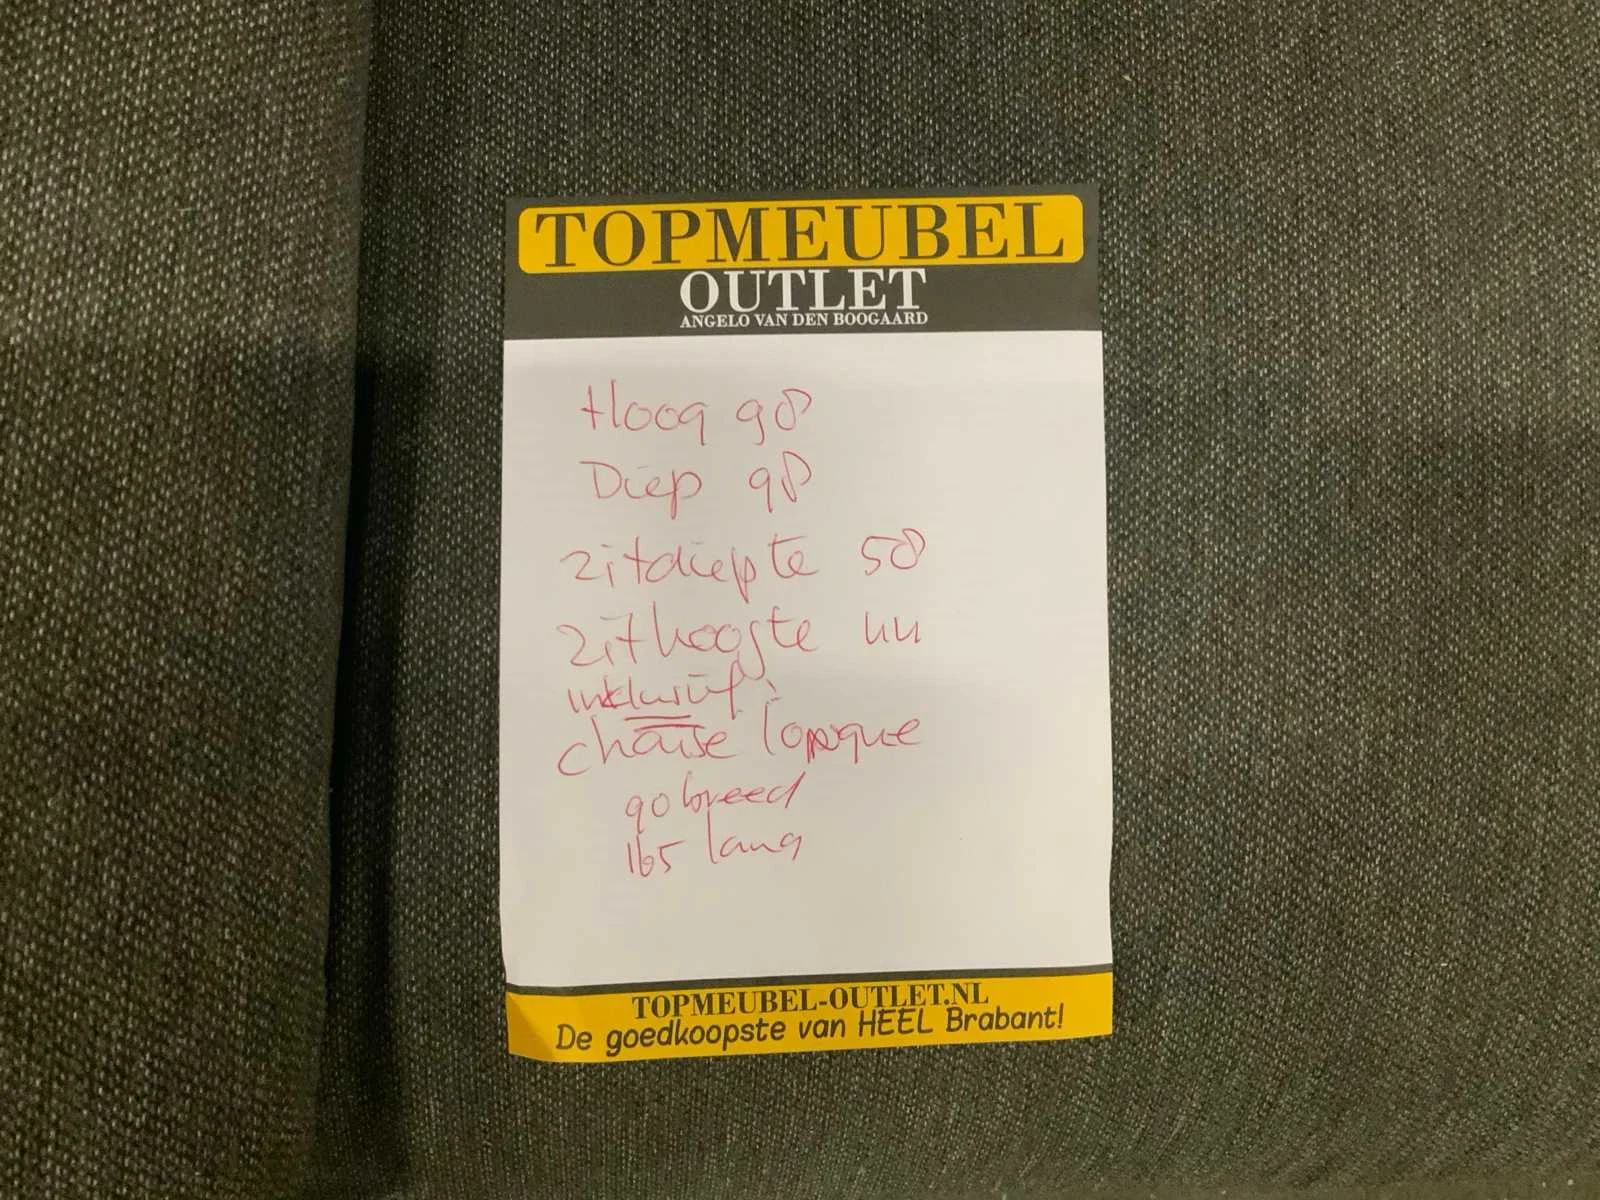 TOPMEUBEL
OUTLET
ANGELO VAN DEN BOOGAARD
Hoog 98
Diep 98
zitdiepte 58
zithoogte 44
inklusief:
chaise longue
90 breed
165 lang
TOPMEUBEL-OUTLET.NL
De goedkoopste van HEEL Brabant!